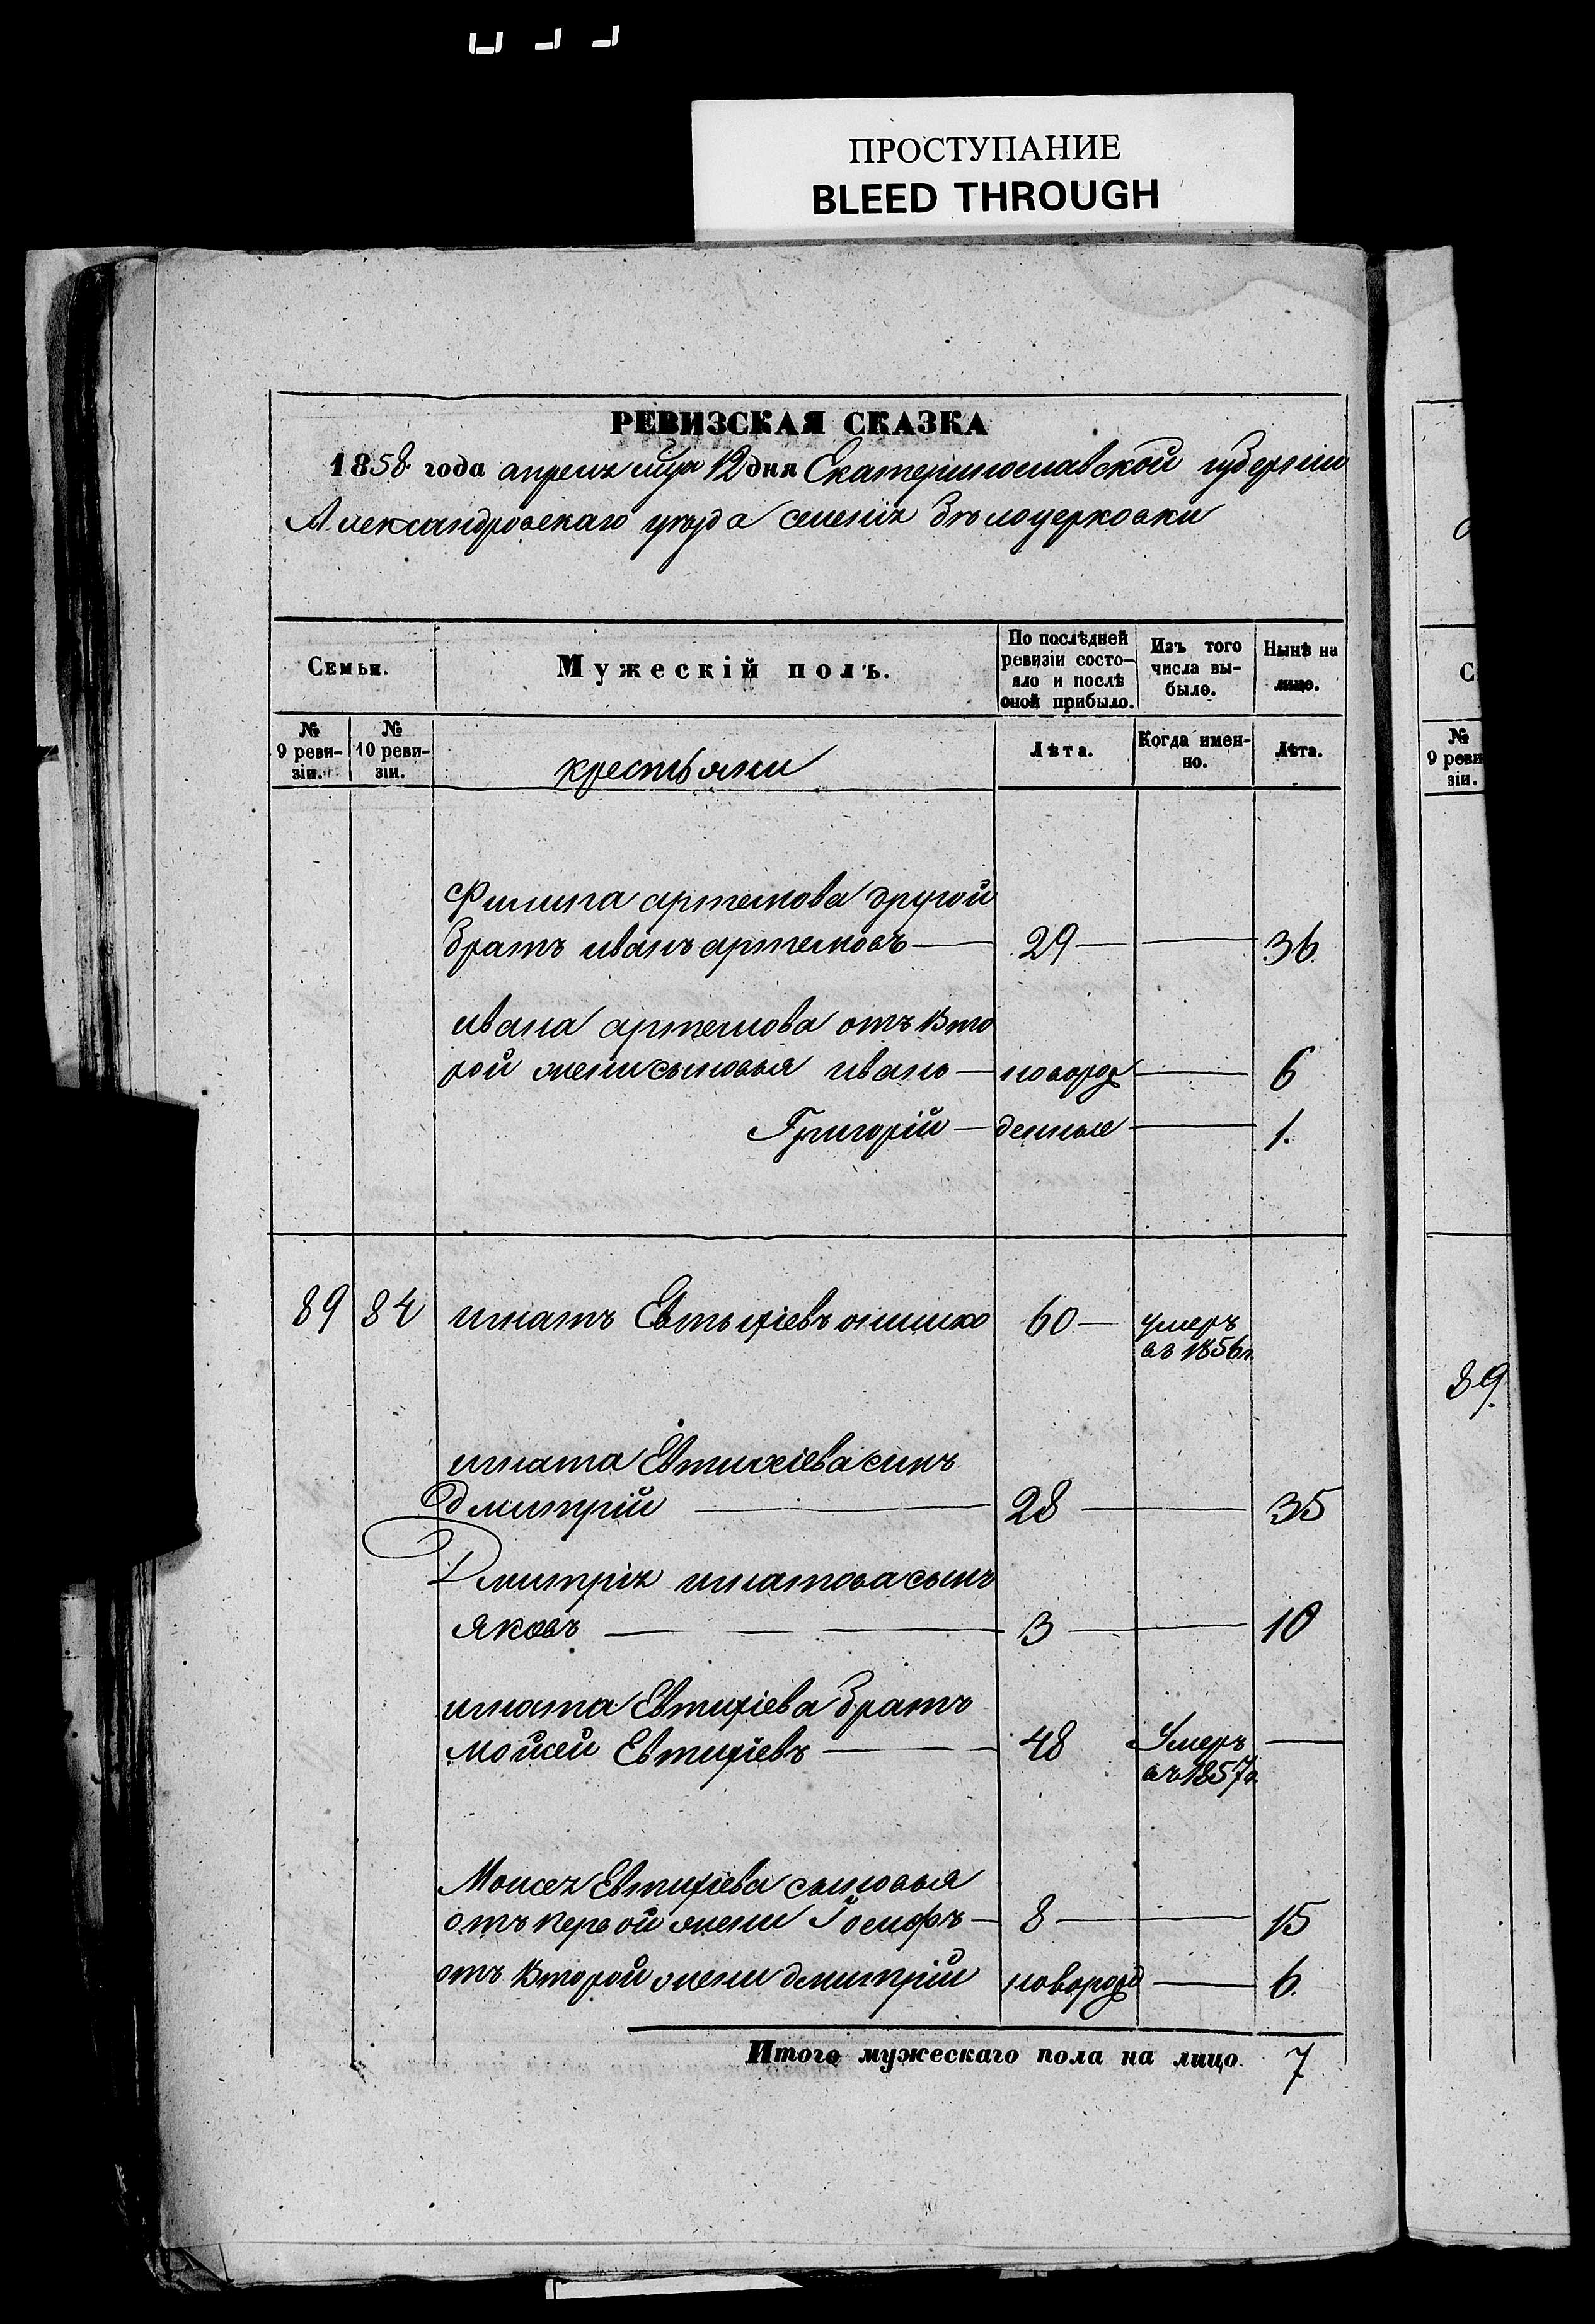 ПРОСТУПАНИЕ
BLEED THROUGH
РЕВИЗСКАЯ СКАЗКА
1858 года апреля мца 12 дня Екатеринославской губерніи
Александровскаго уѣзда селенія бѣлоцерковки
Семьи.
Мужескій полъ.
По послѣдней
ревизіи состо-
яло и послѣ
оной прибыло.
Изъ того
числа вы-
было.
Нынѣ на
лицо.
№
9 реви-
зіи.
№
10 реви-
зіи.
крестьяни
Лѣта.
Когда имен-
но.
Лѣта.
Филипа артемова другой
братъ иванъ артемовъ — 29 — — 36
ивана артемова отъ вто
рой жени сыновья иванъ — новорож — 6
Григорій — денные — 1.
89 84 игнатъ Евтыхіевъ 60 — умеръ
въ 1856 г.
игната Евтихіева синъ
дмитрій — 28 — — 35
Дмитрія игнатова сынъ
яковъ — 3 — — 10
игната Евтихіева братъ
мойсей Евтихіевъ — 48 Умеръ —
въ 1857 г.
Моисея Евтихіева сыновья
отъ первой жени Іосифъ — 8 — — 15
отъ второй жени дмитрій новорожд — 6.
Итого мужескаго пола на лицо 7
С
№
9 реви
зіи.
89.